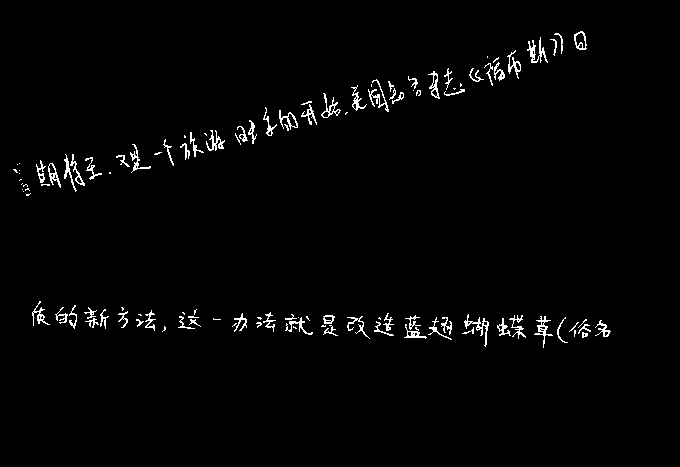 暑期将至,又是一个旅游旺季的开始,美国知名杂志《福布斯》日
质的新方法,这一办法就是改造蓝翅蝴蝶草(俗名